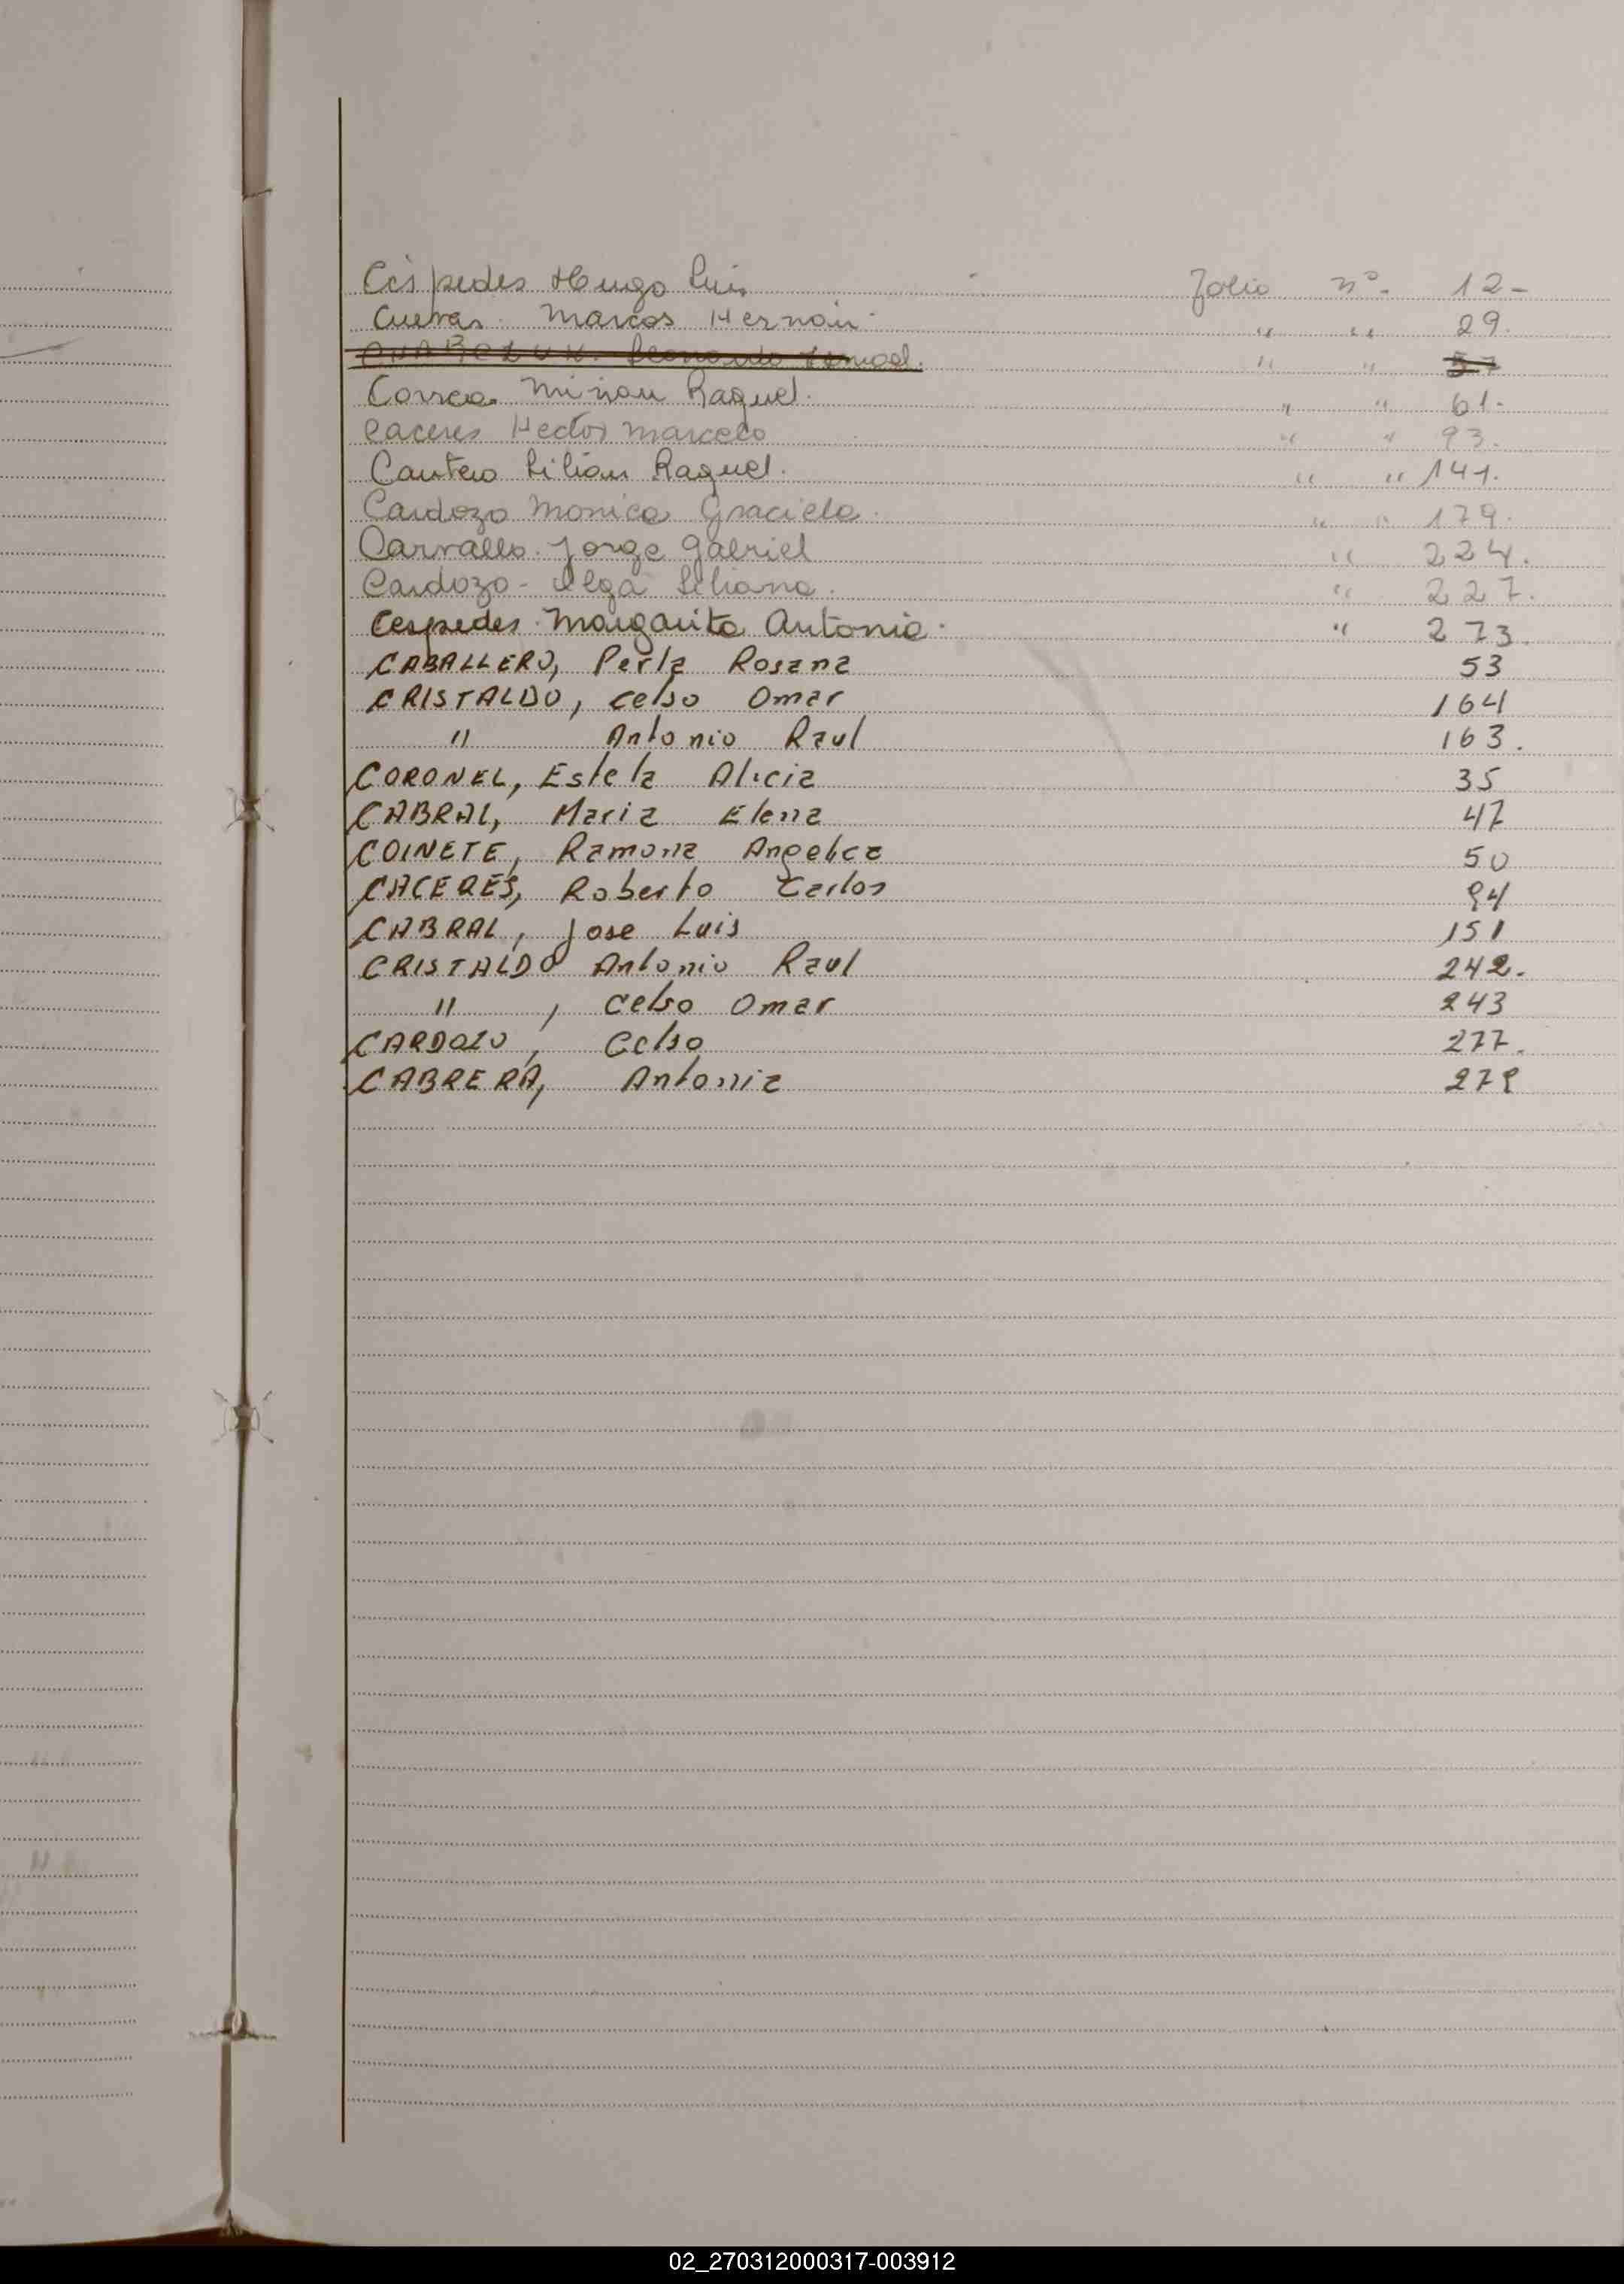 Céspedes Hugo Luis Folio nº. 12-
Cuevas. Marcos Hernán. " " 29.
" " 57
Correa Mirian Raquel. " " 61.
Caceres Hector Marcelo " " 93.
Cantero Lilian Raquel. " " 141.
Cardozo Monica Graciela. " " 179.
Carvallo. Jorge Gabriel " 224.
Cardozo - Olga Liliana. " 227.
Cespedes. Margarita Antonia. " 273.
CABALLERO, Perla Rosana 53
CRISTALDO, Celso Omar 164
" Antonio Raul 163.
CORONEL, Estela Alicia 35
CABRAL, Maria Elena 47
COINETE, Ramona Angelica 50
CACERES, Roberto Carlos 94
CABRAL, Jose Luis 151
CRISTALDO Antonio Raul 242.
" , Celso Omar 243
CARDOZO, Celso 277.
CABRERA, Antonia
02_270312000317-003912